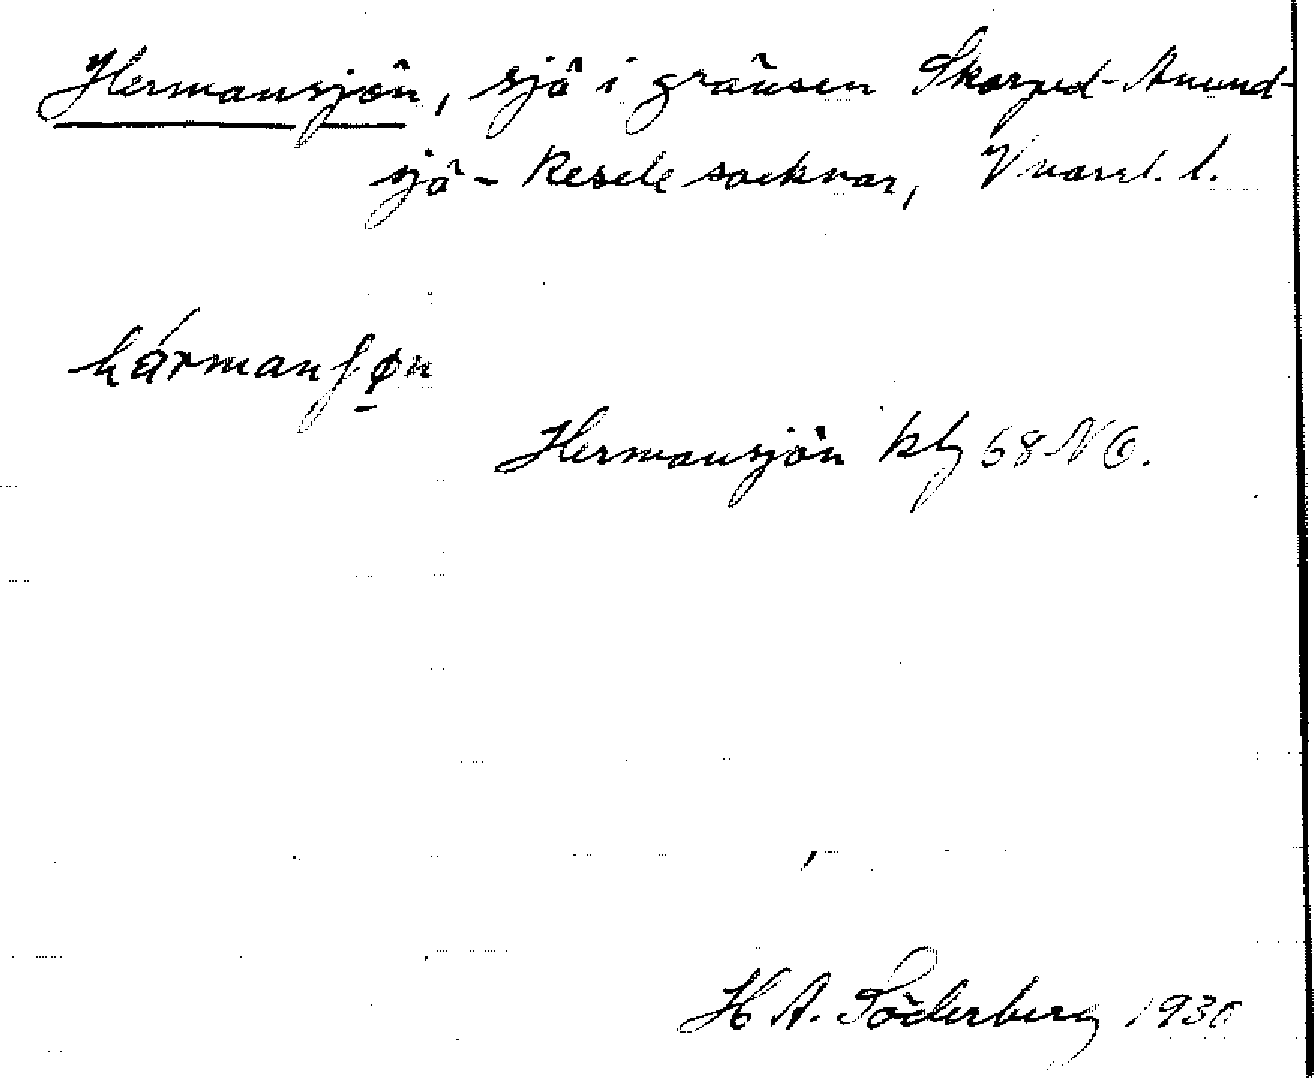 Hermansjön, sjö i gränsen Skorped-Anund-
sjö - Resele socknar, Vnorrl. l.
hármanʃøn
Hermansjön kbl 68 NO.
H A. Söderberg 1930